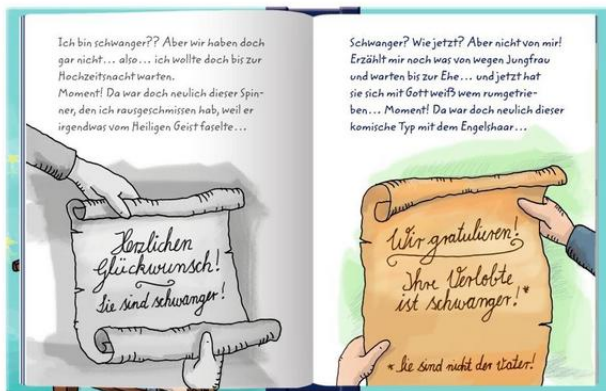 Ich bin schwanger?? Aber wir haben doch
gar nicht... also... ich wollte doch bis zur
Hochzeitsnacht warten.
Moment! Da war doch neulich dieser Spin-
ner, den ich rausgeschmissen hab, weil er
irgendwas vom Heiligen Geist faselte...
Herzlichen
Glückwunsch!
Sie sind schwanger!
Schwanger? Wie jetzt? Aber nicht von mir!
Erzählt mir noch was von wegen Jungfrau
und warten bis zur Ehe... und jetzt hat
sie sich mit Gott weiß wem rumgetrie-
ben... Moment! Da war doch neulich dieser
komische Typ mit dem Engelshaar...
Wir gratulieren!
Ihre Verlobte
ist schwanger!*
* Sie sind nicht der Vater!